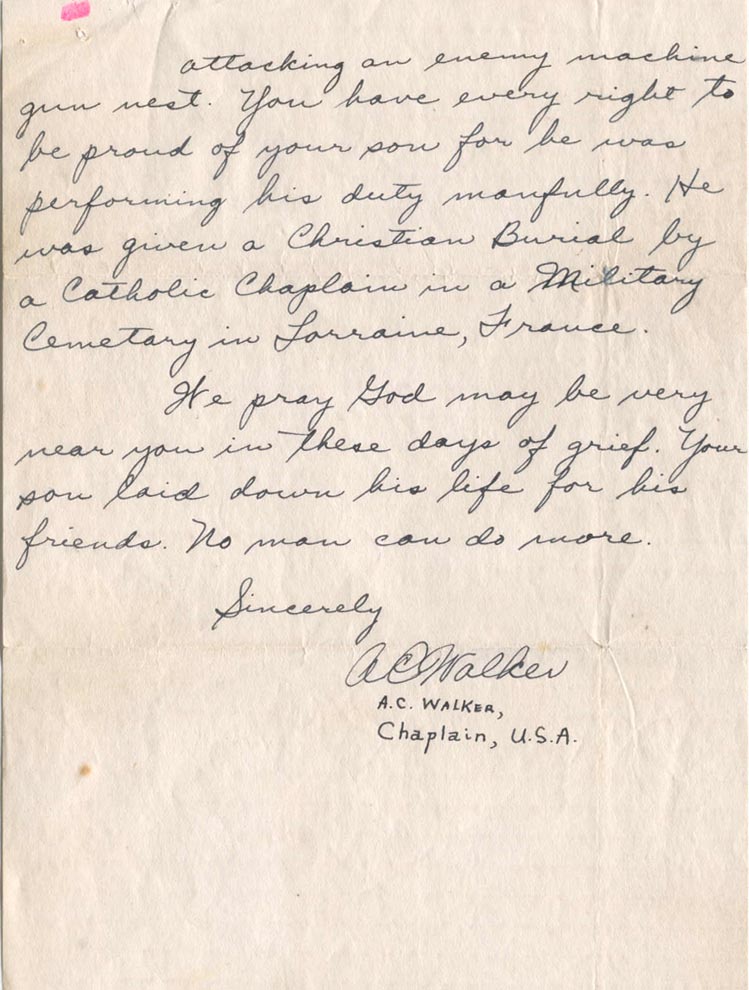 attacking an enemy machine
gun nest. You have every right to
be proud of your son for he was
performing his duty manfully. He
was given a Christian Burial by
a Catholic Chaplain in a Military
Cemetary in Lorraine, France.
We pray God may be very
near you in these days of grief. Your
son laid down his life for his
friends. No man can do more.
Sincerely
A C Walker
A.C. WALKER,
Chaplain, U.S.A.